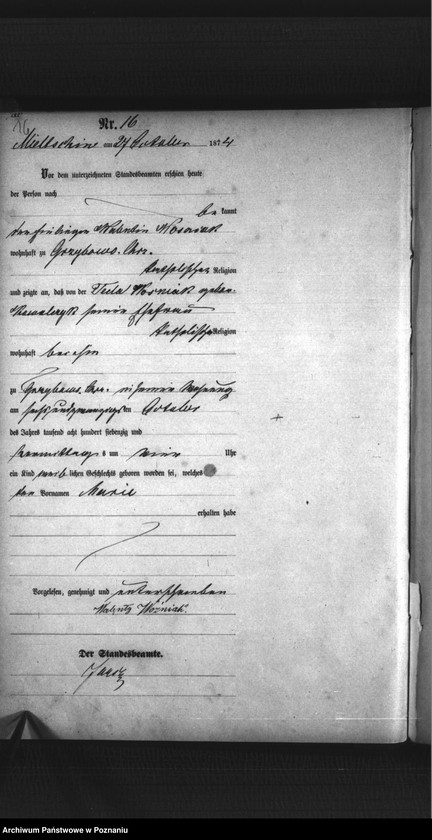 16
Nr. 16
Mieltschin am 27 October 1874
Vor dem unterzeichneten Standesbeamten erschien heute
der Person nach
be kannt
Valentin Wosniak
wohnhaft zu Grzybowo. Chrz.
katholischer Religion
und zeigte an, daß von der Tecla Wosniak geboren
Kowalczyk seiner Ehefrau
katholischer Religion
wohnhaft bei ihm
zu Grzybowo. Chrz. in seiner Wohnung
am sechsundzwanzigsten October
des Jahres tausend acht hundert siebenzig und
vormittags um neun Uhr
ein Kind weib lichen Geschlechts geboren worden sei, welches
den Vornamen Marie
erhalten habe
Vorgelesen, genehmigt und unterschrieben
Woźniak.
Der Standesbeamte.
Archiwum Państwowe w Poznaniu